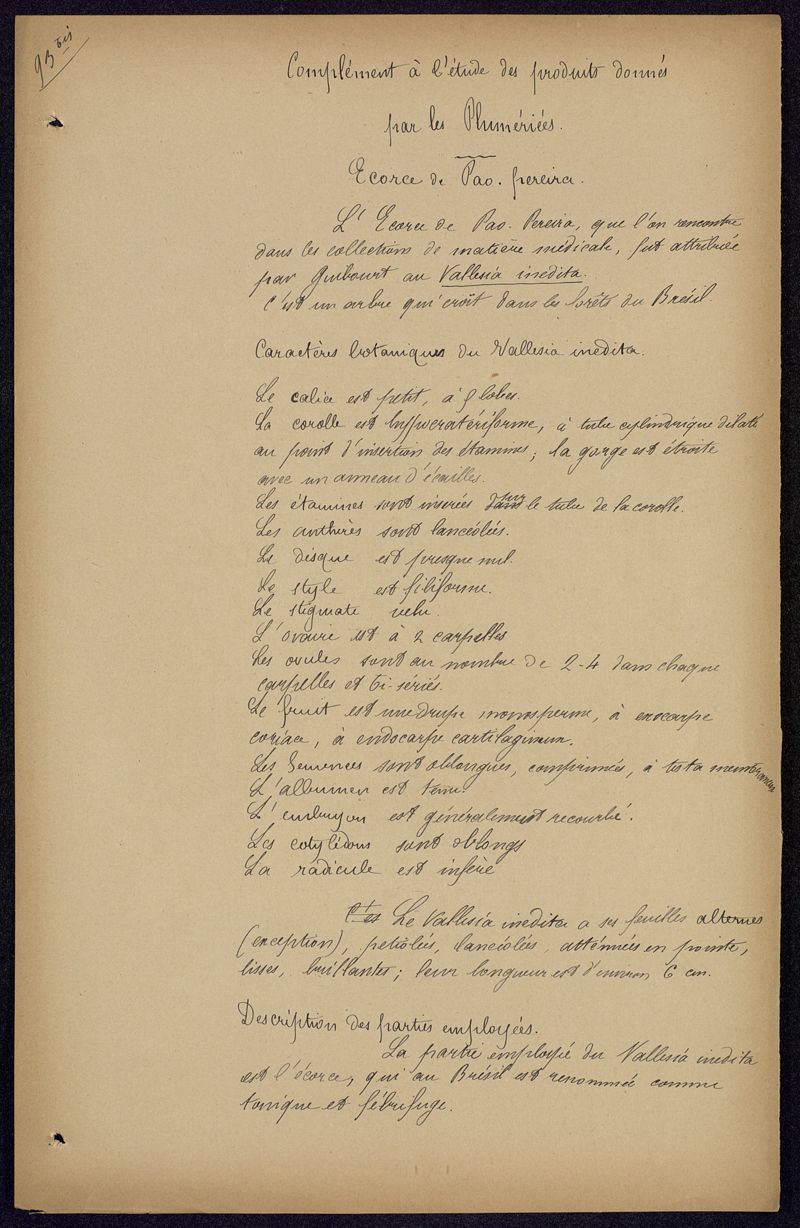 93 bis
Complément à l'étude des produits donnés
par les Plumériées.
Ecorce de Pao. pereira.
L'Ecorce de Pao. Pereira, que l'on rencontre
dans les collections de matière médicale, fut attribuée
par Guibourt au Vallesia inedita.
C'est un arbre qui croît dans les forêts du Brésil
Caractères botaniques du Vallesia inedita.
Le calice est petit, à 5 lobes.
La corolle est hyppocratériforme, à tube cylindrique dilaté
au point d'insertion des étamines; la gorge est étroite
avec un anneau d'écailles.
Les étamines sont insérées sur le tube de la corolle.
Les anthères sont lancéolées.
Le disque est presque nul.
Le style est filiforme.
Le stigmate velu.
L'ovaire est à 2 carpelles
Les ovules sont au nombre de 2-4 dans chaque
carpelles et bi-sériés.
Le fruit est une drupe monosperme, à exocarpe
coriace, à endocarpe cartilagineux.
Les Semences sont oblongues, comprimées, à testa membraneux
L'albumen est tenu.
L'embryon est généralement recourbé.
Les cotylédons sont oblongs
La radicule est infère
Le Vallesia inedita a ses feuilles alternes
(exception), petiolées, lanciolées, atténuées en pointe,
lisses, brillantes; leur longueur est d'environ 6 cm.
Description des parties employées.
La partie employée du Vallesia inedita
est l'écorce, qui au Brésil est renommée comme
tonique et fébrifuge.